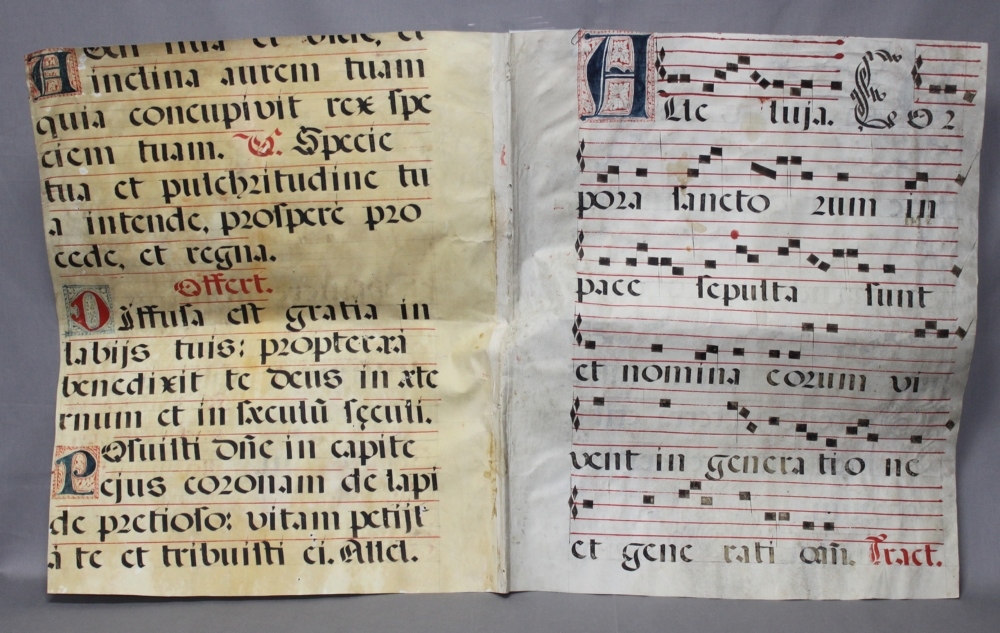 Audi filia et vide, et
inclina aurem tuam
quia concupivit rex spe
ciem tuam. V. Specie
tua et pulchritudine tu
a intende, prospere pro
cede, et regna.
Offert.
Diffusa est gratia in
labijs tuis: propterea
benedixit te Deus in æte
rnum et in sæculũ sęculi.
Posuisti Dñe in capite
ejus coronam de lapi
de pretioso: vitam petijt
a te et tribuisti ei. Allel.
ALle luja. Cor
pora sancto rum in
pace sepulta sunt
et nomina eorum vi
vent in genera tio ne
et gene rati oñ. Tract.